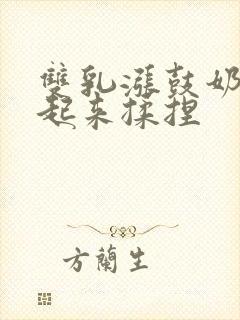 雙乳漲鼓奶
起来揉捏
方蘭生